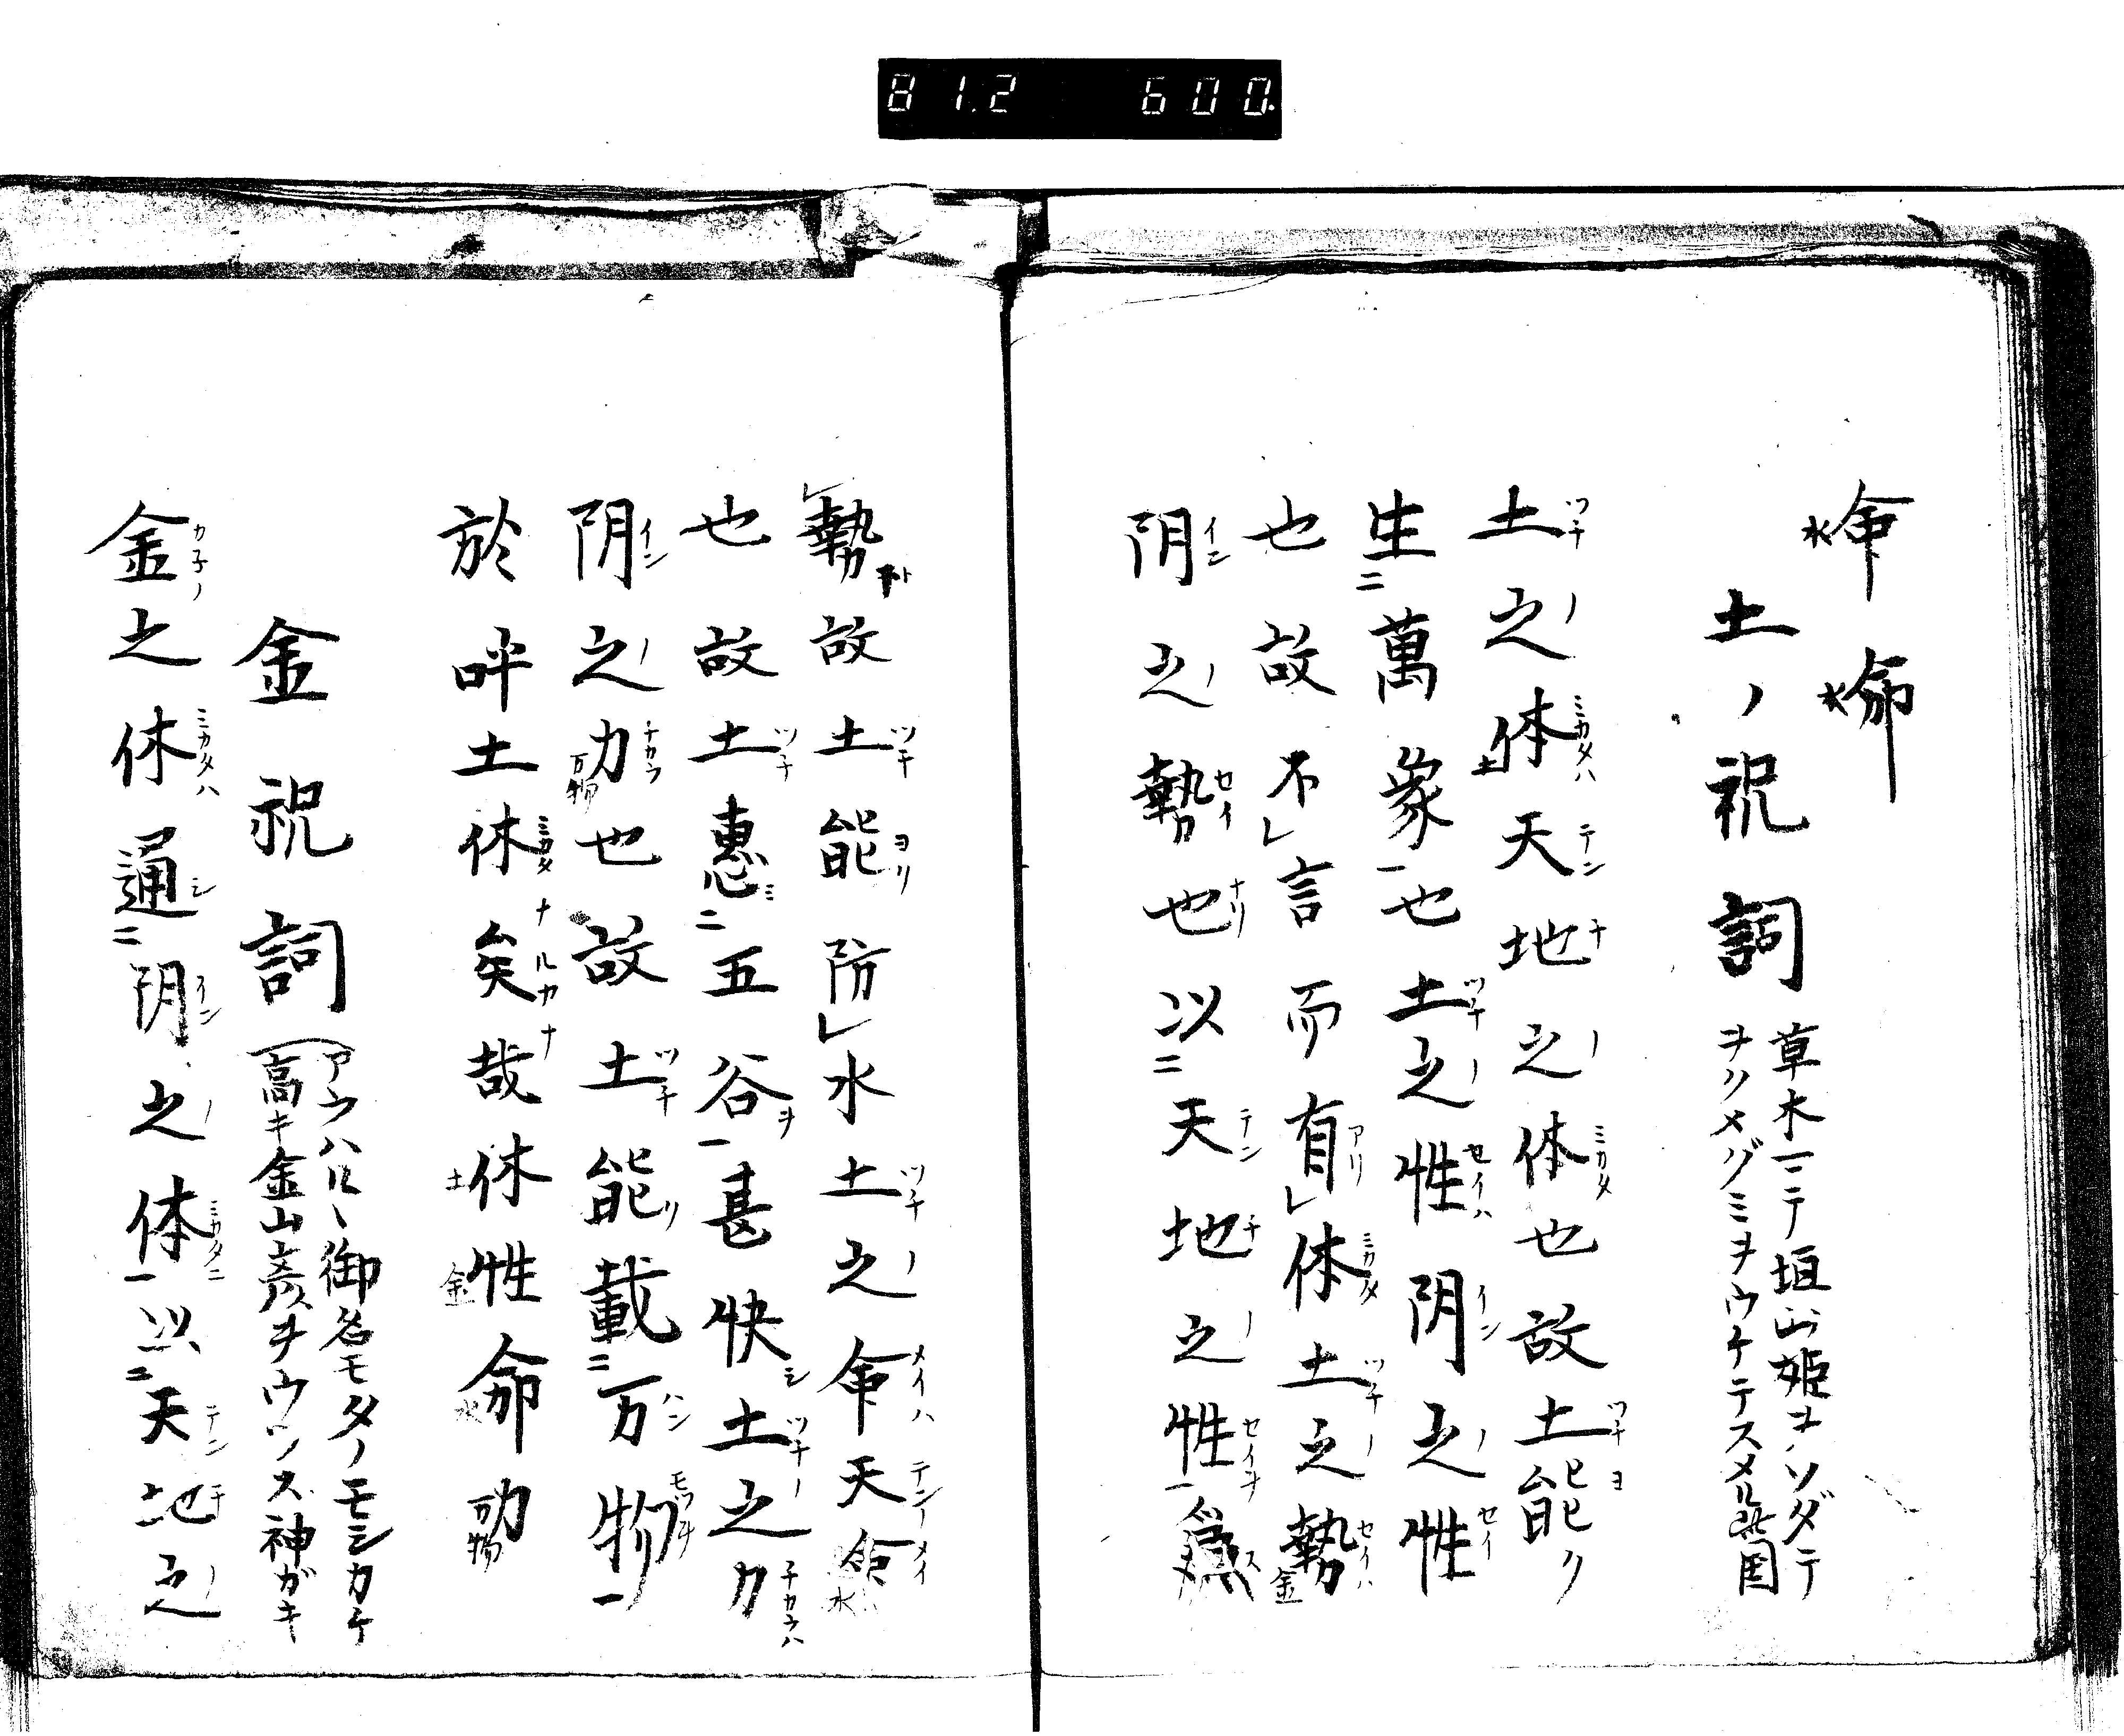 81.2 600.
命 命
水 水
土ノ祝詞
草木ニテ垣山姫ヲソダテ
ヲリメグミヲウケテスメル此国
土之体天地之体也故土能
生二萬象一也土之性阴之性
也故不レ言而有レ体土之勢
阴之勢也以二天地之性一為
レ勢故土能防レ水土之命天命
也故土惠二五谷一甚快土之力
阴之力也故土能載二万物一
於呼土体矣哉体性命力
金祝詞
アラハルヽ御名モタノモシカケ
高キ金山彦ヲウツス神ガキ
金之体通二阴之体一以二天地之